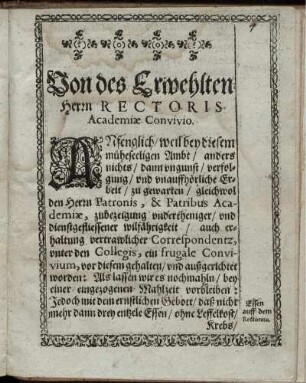 Von des Erwehlten
Herrn RECTORIS
Academiæ Convivio.
ANfenglich / weil bey diesem
müheseeligen Ambt / anders
nichts / dann ungunst / verfol-
gung / vnd vnauffhörliche Er-
beit / zu gewarten / gleichwol
den Herrn Patronis, & Patribus Aca-
demiæ, zubezeigung vndertheniger / vnd
dienstgeflissener wilfährigkeit / auch er-
haltung vertrawlicher Correspondentz,
vnter den Collegis, ein frugale Convi-
vium, vor diesem gehalten / vnd außgerichtet
worden: Als lassen wir es nochmahln / bey
einer eingezogenen Mahlzeit vorbleiben:
Jedoch mit dem ernstlichen Gebott / daß nicht
mehr dann drey entzele Essen / ohne Leffelkost /
Krebs /
Essen
auff dem
Rectorun.